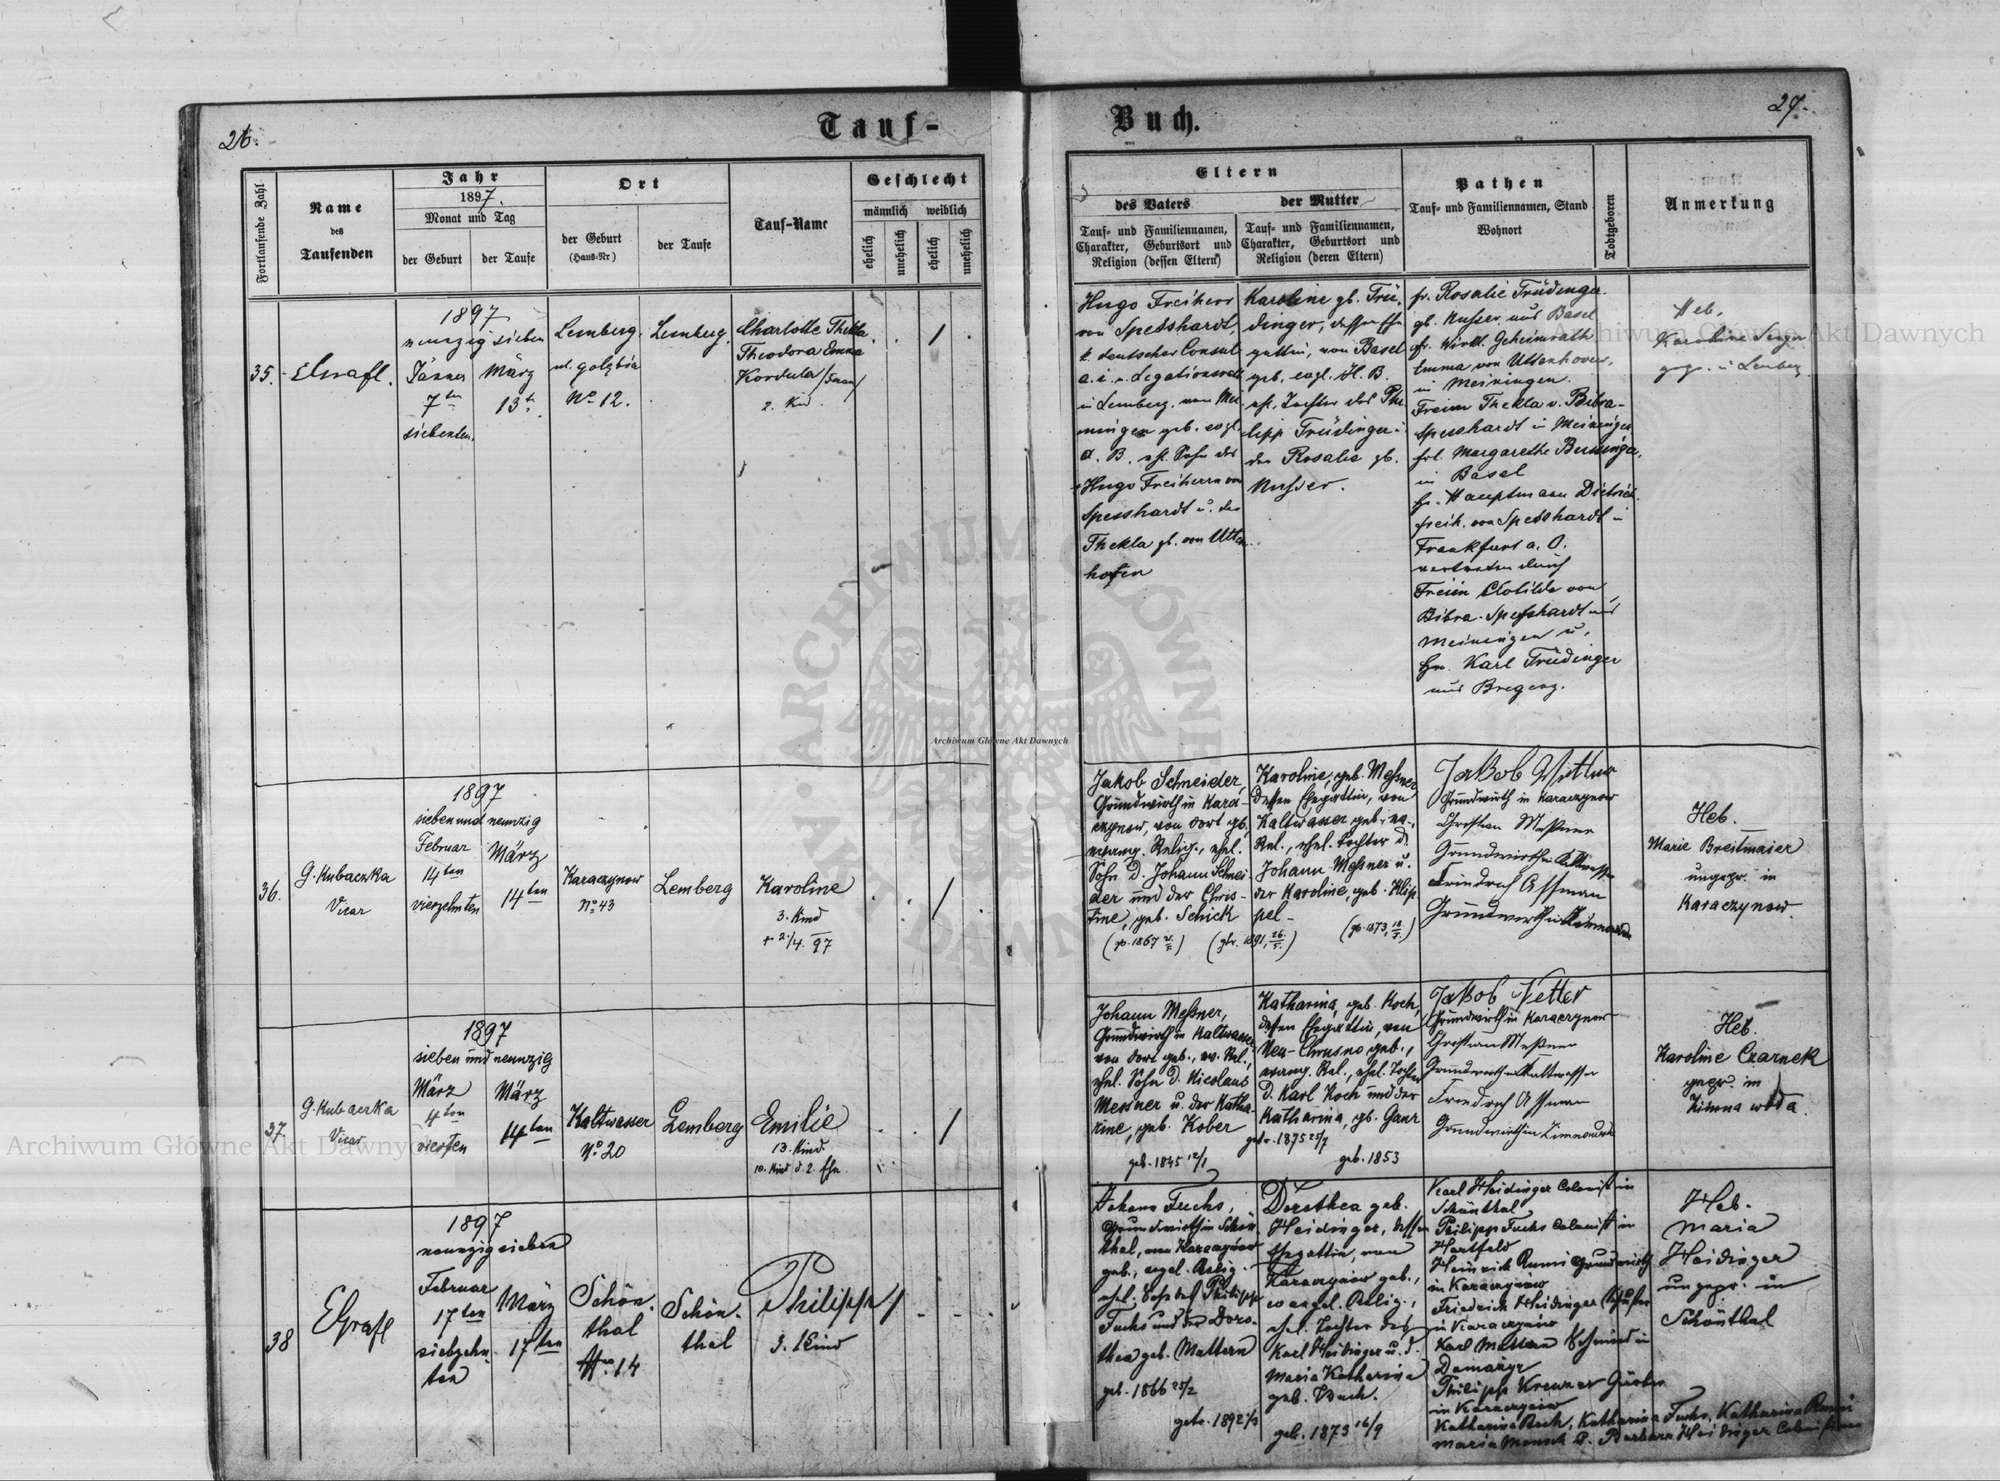 26.
Tauf-
Fortlaufende Zahl
Name
des
Taufenden
Jahr
1897.
Monat und Tag
der Geburt
der Taufe
Ort
der Geburt
(Haus-Nr)
der Taufe
Tauf-Name
Geschlecht
männlich
weiblich
ehelich
unehelich
ehelich
unehelich
35.
1897
neunzig sieben
Jänner
7ten
siebenten.
März
13t.
Lemberg.
No 12.
Lemberg.
Charlotte Thekla
Theodora Emma
Kordula
2. Kind.
36.
G. Kubaczka
Vicar
1897
sieben und neunzig
Februar
14ten
vierzehnten
März
14ten
Karaczynow
No 43
Lemberg
Karoline
3. Kind
+ 2/4. 97
37.
G. Kubaczka
Vicar
1897
sieben und neunzig
März
4ten
vierten
März
14ten
Kaltwasser
No 20
Lemberg
Emilie
13. Kind
10. Kind d. 2. Ehe.
38
1897
neunzig sieben
Februar
17ten
siebzehn-
ten
März
17ten
Schön-
thal
Nro 14
Schön-
thal
Philipp
3. Kind
Buch.
27.
Eltern
des Vaters
Tauf- und Familiennamen,
Charakter, Geburtsort und
Religion (dessen Eltern)
der Mutter
Tauf- und Familiennamen,
Charakter, Geburtsort und
Religion (deren Eltern)
Pathen
Tauf- und Familiennamen, Stand
Wohnort
Todtgeboren
Anmerkung
Hugo Freiherr
von Spesshardt,
k. deutscher Consul
in Lemberg, von Mei-
ningen geb. evgl.
A. B. ehl. Sohn des
Hugo Freiherrn von
Spesshardt u. der
Thekla gb. von Utten-
hofen
Karoline gb. Trü-
dinger, dessen Ehe-
gattin, von Basel
geb. evgl. H. B.
ehl. Tochter des Phi-
lipp Trüdinger u.
der Rosalie gb.
Nusser.
fr. Rosalie Trüdinger
gb. Nusser aus Basel
fr. Wirkl. Geheimrath
Emma von Uttenhoven
in Meiningen.
Freiin Thekla v. Bibra-
Spesshardt in Meiningen
frl. Margarethe
in Basel
Hr. Hauptmann Dietrich
freih. von Spesshardt in
Frankfurt a. O.
vertreten durch
Freiin Clotilde von
Bibra-Spesshardt aus
Meiningen u.
Hr. Karl Trüdinger
aus Bregenz.
Heb.
Karoline
gepr. in Lemberg
Jakob Schneider,
Grundwirth in Kara-
czynow, von dort gb,
evang. Relig., ehel.
Sohn d. Johann Schnei-
der und der Chris-
tine, geb. Schick
Karoline, geb. Meßner
dessen Ehegattin, von
Kaltwasser geb., ev.
Rel., ehel. Tochter d.
Johann Meßner u.
der Karoline, geb. Klip-
pel-
Jakob Vetter
Grundwirth in Karaczynow
Christian Meßner
Grundwirth in Kaltwasser
Friedrich Assman
Grundwirth in
Heb.
Marie Breitmaier
ungepr. in
Karaczynow.
Johann Meßner,
Grundwirth in Kaltwasser
von dort geb., ev. Rel.,
ehel. Sohn d. Nicolaus
Messner u. der Katha-
rine, geb. Kober
geb. 1845 12/1
Katharina, geb. Koch,
dessen Ehegattin, von
Neu-Chrusno geb.,
evang. Rel., ehel. Tochter
d. Karl Koch und der
Katharina, gb. Ganz
getr. 1875 25/7
geb. 1853
Jakob Vetter
Grundwirth in Karaczynow
Christian Meßner
Grundwirth in Kaltwasser
Friedrich Assman
Grundwirth in Zimnawoda
Heb.
Karoline Czarnek
gepr. in
Zimna woda.
Johann Fuchs,
Grundwirth in Schön-
thal, von Karaczynow
geb., evgel. Relig.
ehel. Sohn des Philipp
Fuchs und der Doro-
thea geb. Mattern
geb. 1866 25/2
Dorothea geb.
Heidinger, dessen
Ehegattin, von
Karaczynow geb.,
evangel. Relig.,
ehel. Tochter des
Karl Heidinger u. d.
Maria Katharina
geb. Buch.
geb. 1873 16/9
Karl Heidinger Colonist in
Schönthal
Philipp Fuchs Colonist in
Hartfeld
Heinrich Rumi Grundwirth
in Karaczynow
Friedrich Heidinger
in Karaczynow
Karl Mattern Schmied in
Philipp Kreuzer
in Karaczynow
Katharina Fuchs, Katharina Rumi
Barbara Heidinger
Heb.
Maria
Heidinger
ungepr. in
Schönthal
Archiwum Główne Akt Dawnych
Archiwum Główne Akt Dawnych
Archiwum Główne Akt Dawnych
ARCHIWUM GŁÓWNE AKT DAWNYCH